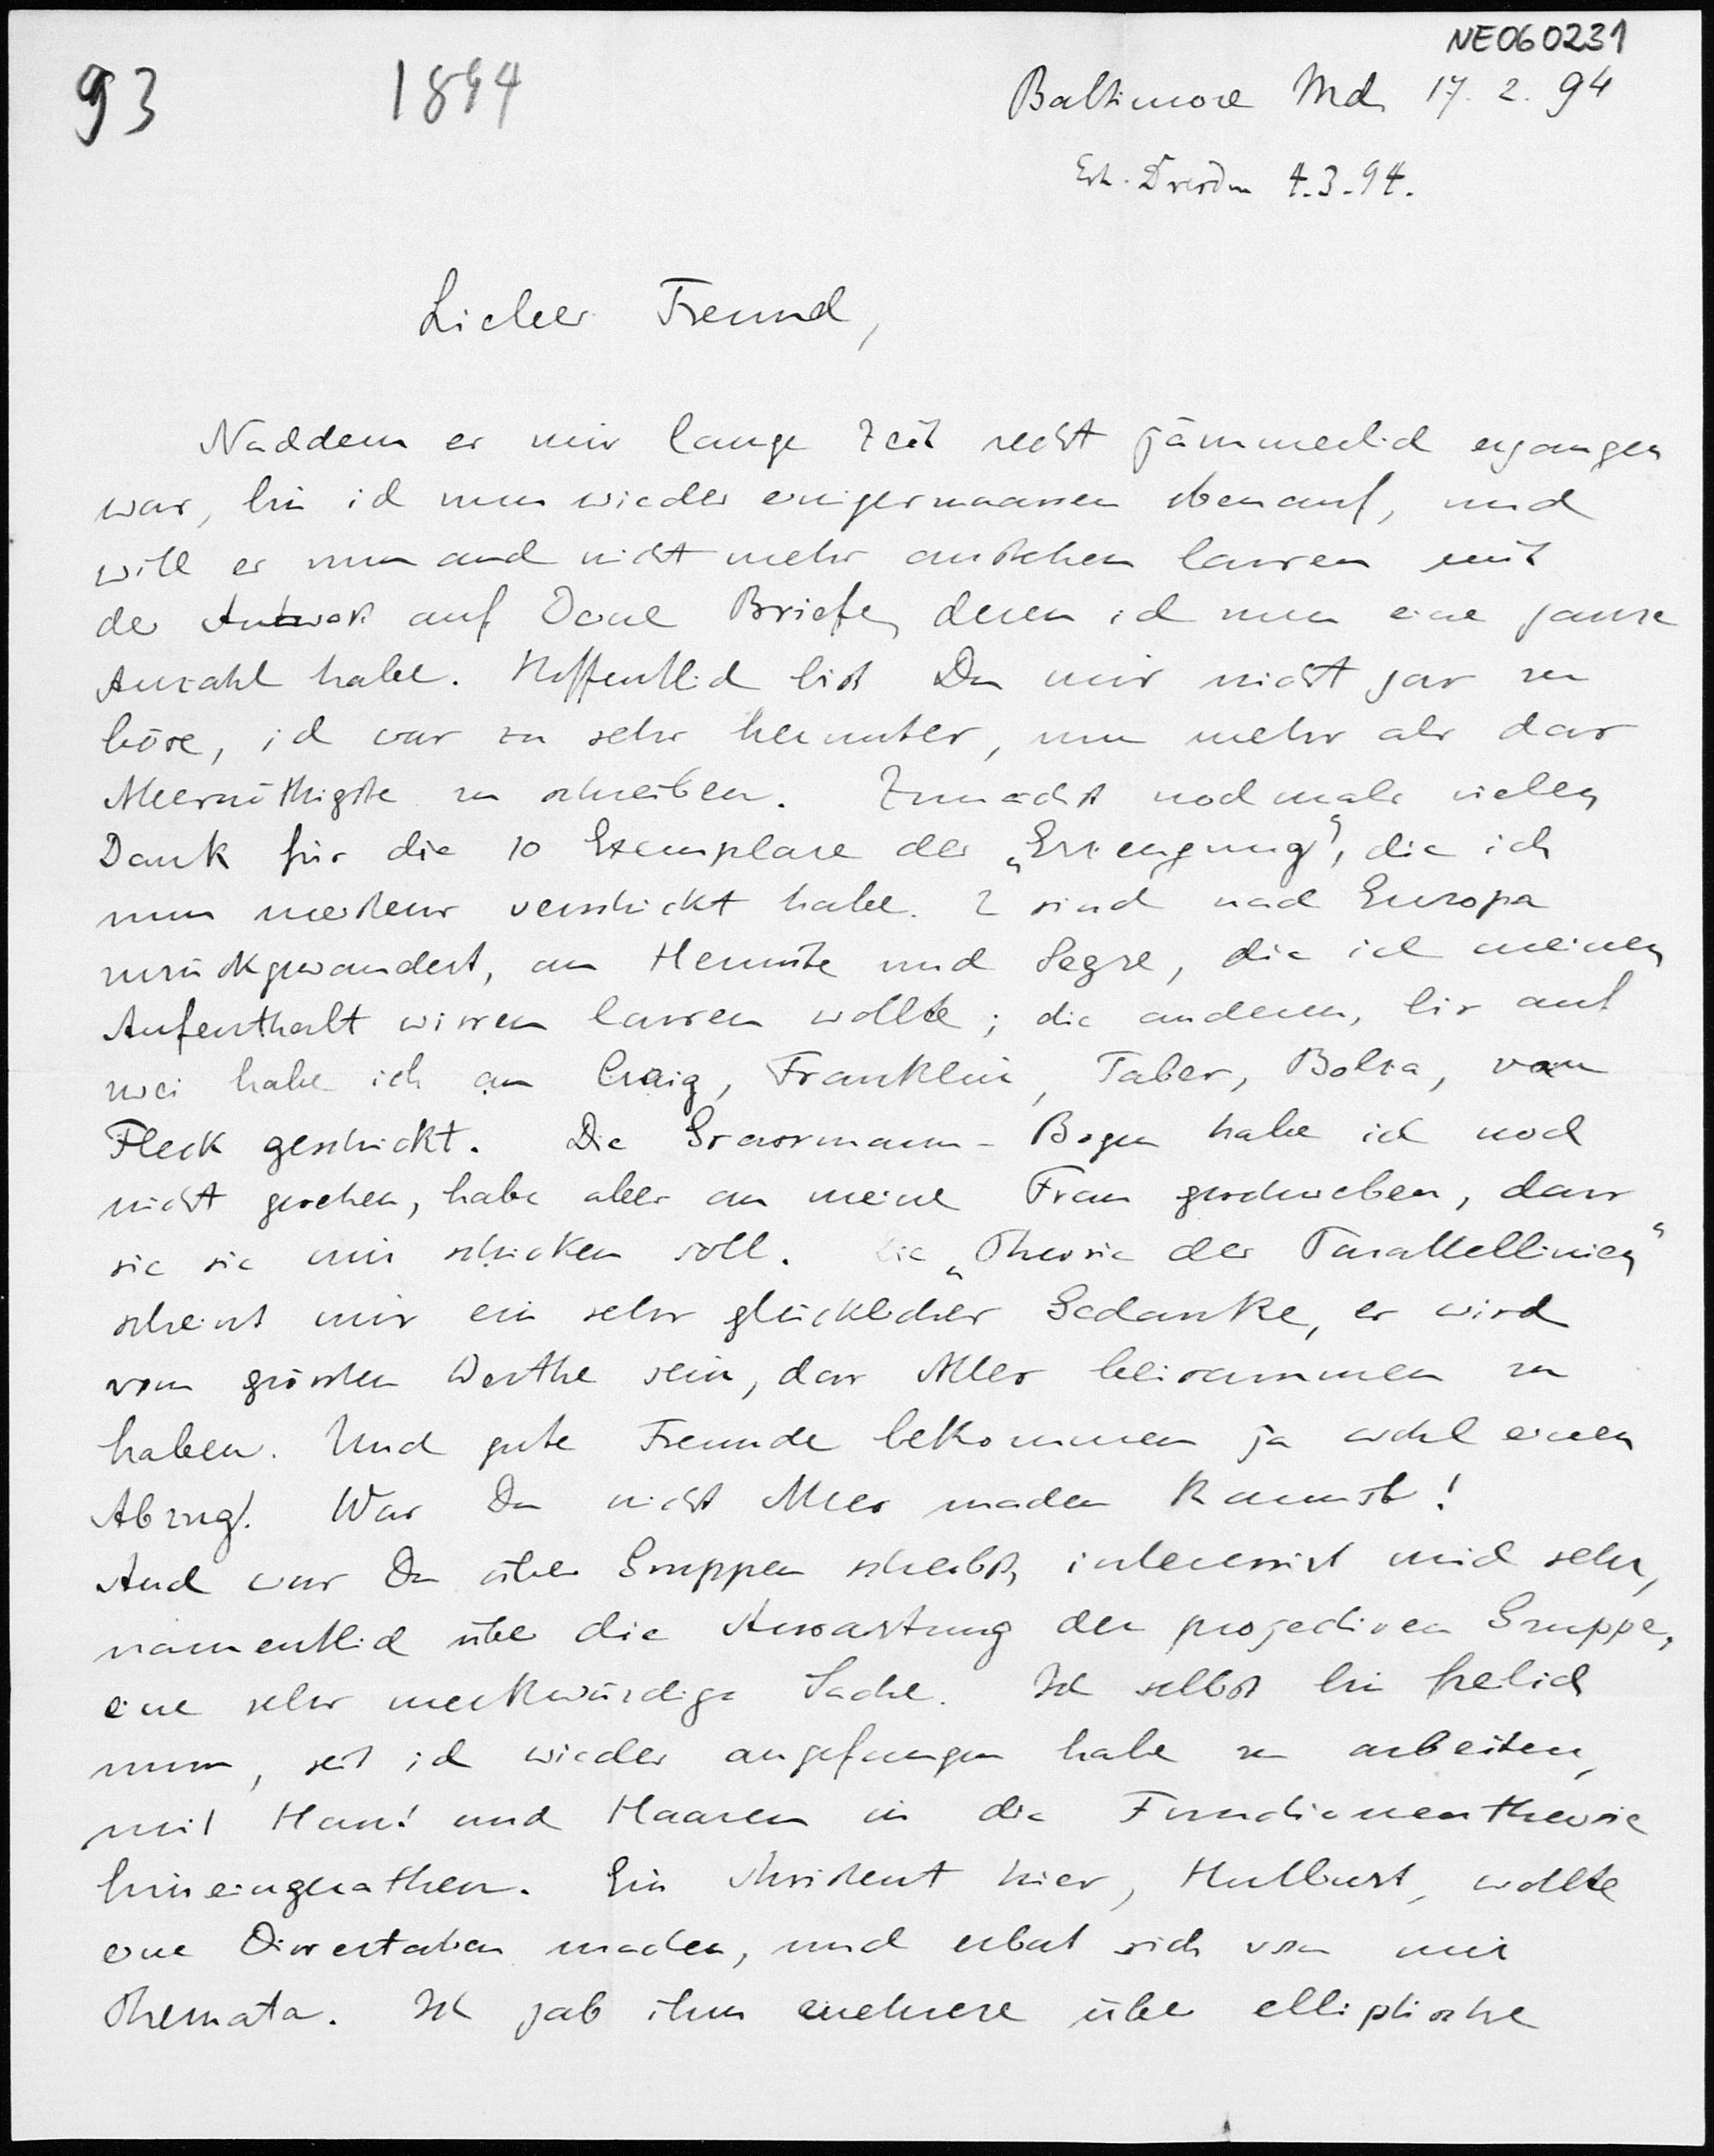 NE060231
93 1894 Baltimore Md. 17. 2. 94
Erh. Dresden 4.3.94.
Lieber Freund,
Nachdem es mir lange Zeit recht jämmerlich ergangen
war, bin ich nun wieder einigermaassen obenauf, und
will es nun auch nicht mehr anstehen lassen mit
der Antwort auf Deine Briefe, deren ich nun eine ganze
Anzahl habe. Hoffentlich bist Du mir nicht gar zu
böse, ich war zu sehr herunter, um mehr als das
Allernöthigste zu schreiben. Zunächst nochmals vielen
Dank für die 10 Exemplare der „Erzeugung“, die ich
nun meistens verschickt habe. 2 sind nach Europa
zurückgewandert, an Hermite und Segre, die ich meinen
Aufenthalt wissen lassen wollte; die anderen, bis auf
zwei habe ich an Craig, Franklin, Taber, Bolza, van
Fleck geschickt. Die Grassmann-Bogen habe ich noch
nicht gesehen, habe aber an meine Frau geschrieben, dass
sie sie mir schicken soll. Die „Theorie der Parallellinien“
scheint mir ein sehr glücklicher Gedanke, es wird
vom grössten Werthe sein, das Alles beisammen zu
haben. Und gute Freunde bekommen ja wohl einen
Abzug! Was Du nicht Alles machen kannst!
Auch was Du über Gruppen schreibst, interessirt mich sehr,
namentlich über die Ausartung der projectiven Gruppe,
eine sehr merkwürdige Sache. Ich selbst bin freilich
nun, seit ich wieder angefangen habe zu arbeiten,
mit Haut und Haaren in die Functionentheorie
hineingerathen. Ein Assistent hier, Hulburt, wollte
eine Dissertation machen, und erbat sich von mir
Themata. Ich gab ihm mehrere über elliptische